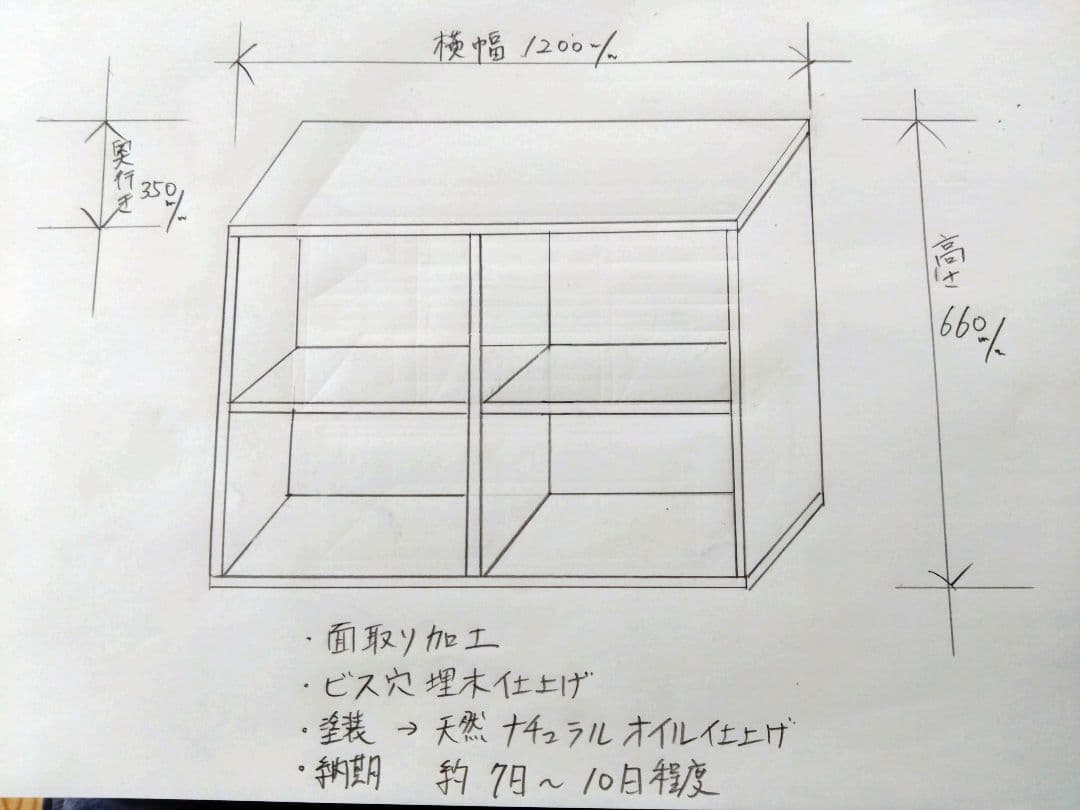 横幅 1200m/m
奥行き 350m/m
高さ 660m/m
・面取り加工
・ビス穴埋木仕上げ
・塗装 → 天然ナチュラルオイル仕上げ
・納期 約7日~10日程度